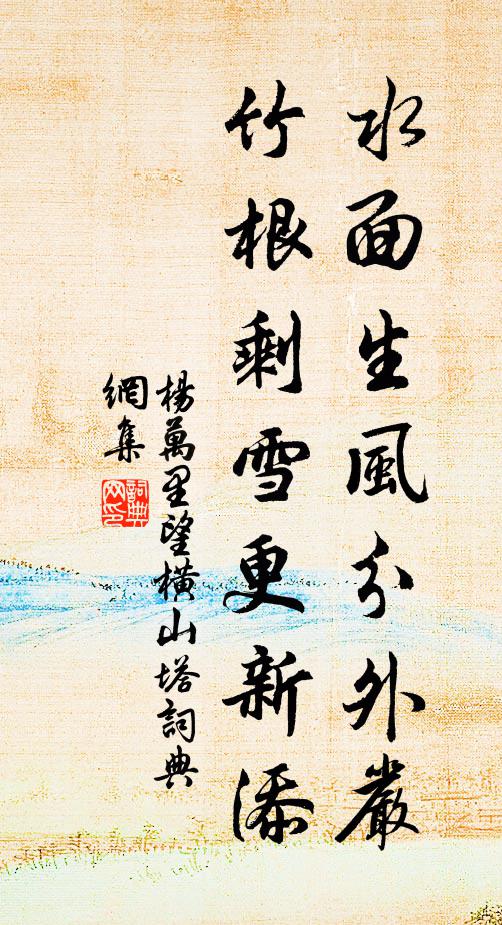 水面生風分外嚴
竹根剩雪更新添
楊萬里望橫山塔詞典
網集
詞典
网印